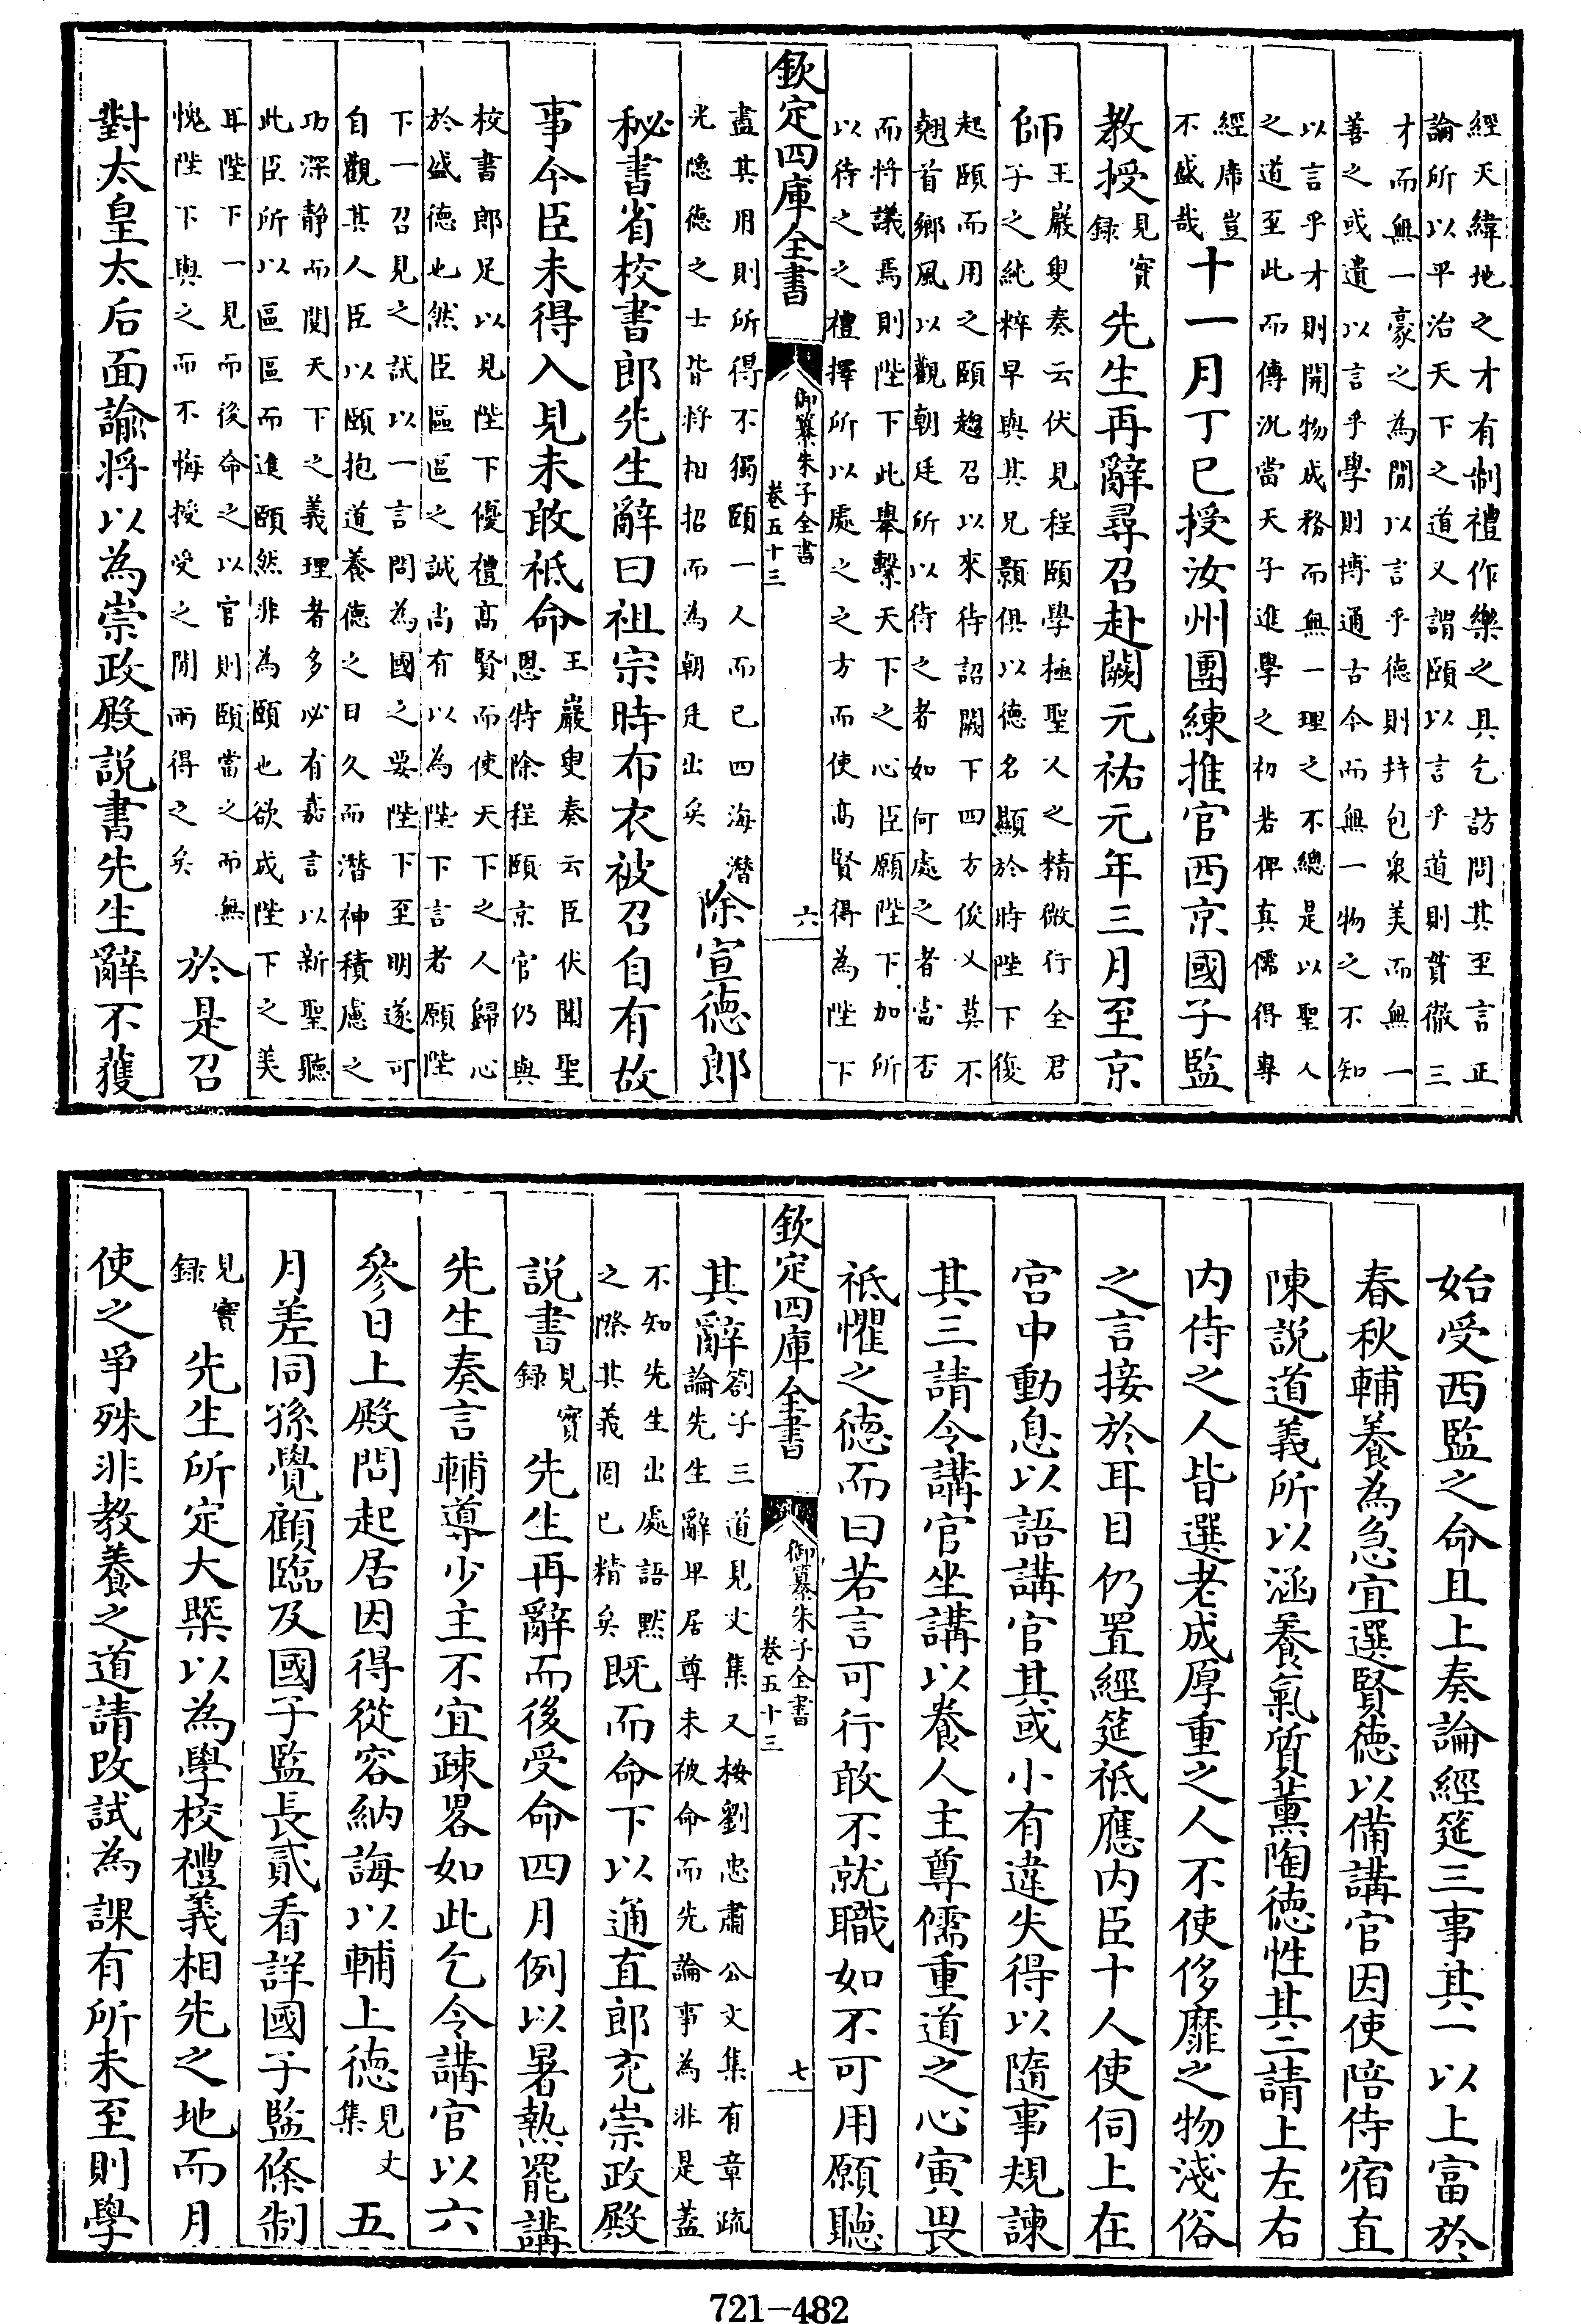 經天緯地之才有制禮作樂之具乞訪問其至言正
論所以平治天下之道又謂頤以言乎道則貫徹三
才而無一豪之為閒以言乎德則并包衆美而無一
善之或遺以言乎學則博通古今而無一物之不知
以言乎才則開物成務而無一理之不總是以聖人
之道至此而傳況當天子進學之初若俾真儒得專
經席豈
不盛哉
十一月丁巳授汝州團練推官西京國子監
教授見實
録先生再辭尋召赴闕元祐元年三月至京
師王巖叟奏云伏見程頤學極聖人之精微行全君
子之純粹早與其兄顥俱以德名顯於時陛下復
起頤而用之頤趨召以來待詔闕下四方俊乂莫不
翹首鄉風以觀朝廷所以待之者如何處之者當否
而將議焉則陛下此舉繫天下之心臣願陛下加所
以待之之禮擇所以處之之方而使高賢得為陛下
欽定四庫全書
御纂朱子全書
卷五十三
六
盡其用則所得不獨頤一人而已四海潛
光隐德之士皆將相招而為朝廷出矣
除宣德郎
秘書省校書郎先生辭曰祖宗時布衣被召自有故
事今臣未得入見未敢祗命王巖叟奏云臣伏聞聖
恩特除程頤京官仍與
校書郎足以見陛下優禮高賢而使天下之人歸心
於盛德也然臣區區之誠尚有以為陛下言者願陛
下一召見之試以一言問為國之要陛下至明遂可
自觀其人臣以頤抱道養德之日久而潛神積慮之
功深静而閱天下之義理者多必有嘉言以新聖聽
此臣所以區區而進頤然非為頤也欲成陛下之美
耳陛下一見而後命之以官則頤當之而無
愧陛下與之而不悔授受之閒兩得之矣
於是召
對太皇太后面諭將以為崇政殿説書先生辭不獲
始受西監之命且上奏論經筵三事其一以上富於
春秋輔養為急宜選賢德以備講官因使陪侍宿直
陳說道義所以涵養氣質薰陶德性其二請上左右
内侍之人皆選老成厚重之人不使侈靡之物淺俗
之言接於耳目仍置經筵祗應内臣十人使伺上在
宫中動息以語講官其或小有違失得以隨事規諫
其三請令講官坐講以養人主尊儒重道之心寅畏
祗懼之德而曰若言可行敢不就職如不可用願聽
欽定四庫全書
御纂朱子全書
卷五十三
七
其辭劄子三道見文集又按劉忠肅公文集有章疏
論先生辭卑居尊未被命而先論事為非是蓋
不知先生出處語黙
之際其義固已精矣
既而命下以通直郎充崇政殿
説書見實
録先生再辭而後受命四月例以暑熱罷講
先生奏言輔導少主不宜疎畧如此乞令講官以六
參日上殿問起居因得從容納誨以輔上德見文
集五
月差同孫覺顧臨及國子監長貳看詳國子監條制
見實
録先生所定大槩以為學校禮義相先之地而月
使之爭殊非教養之道請改試為課有所未至則學
721—482